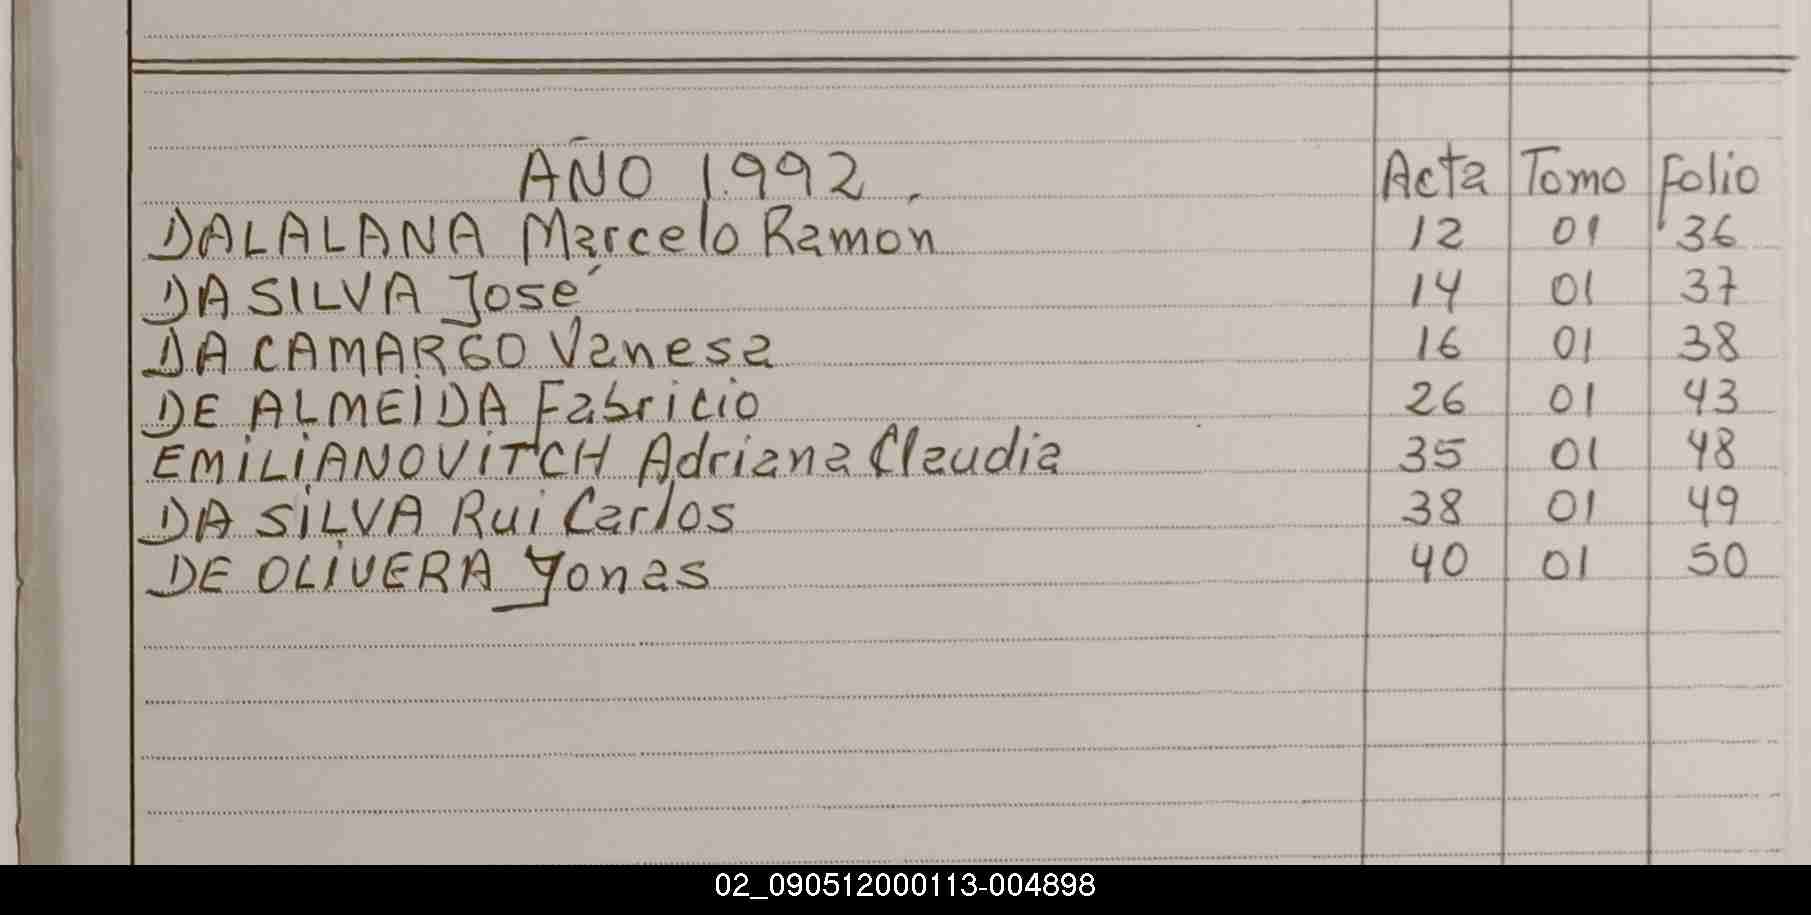 AÑO 1.992. Acta Tomo Folio
DALALANA Marcelo Ramón 12 01 36
DA SILVA José 14 01 37
DA CAMARGO Vanesa 16 01 38
DE ALMEIDA Fabricio 26 01 43
EMILIANOVITCH Adriana Claudia 35 01 48
DA SILVA Rui Carlos 38 01 49
DE OLIVERA Yonas 40 01 50
02_090512000113-004898